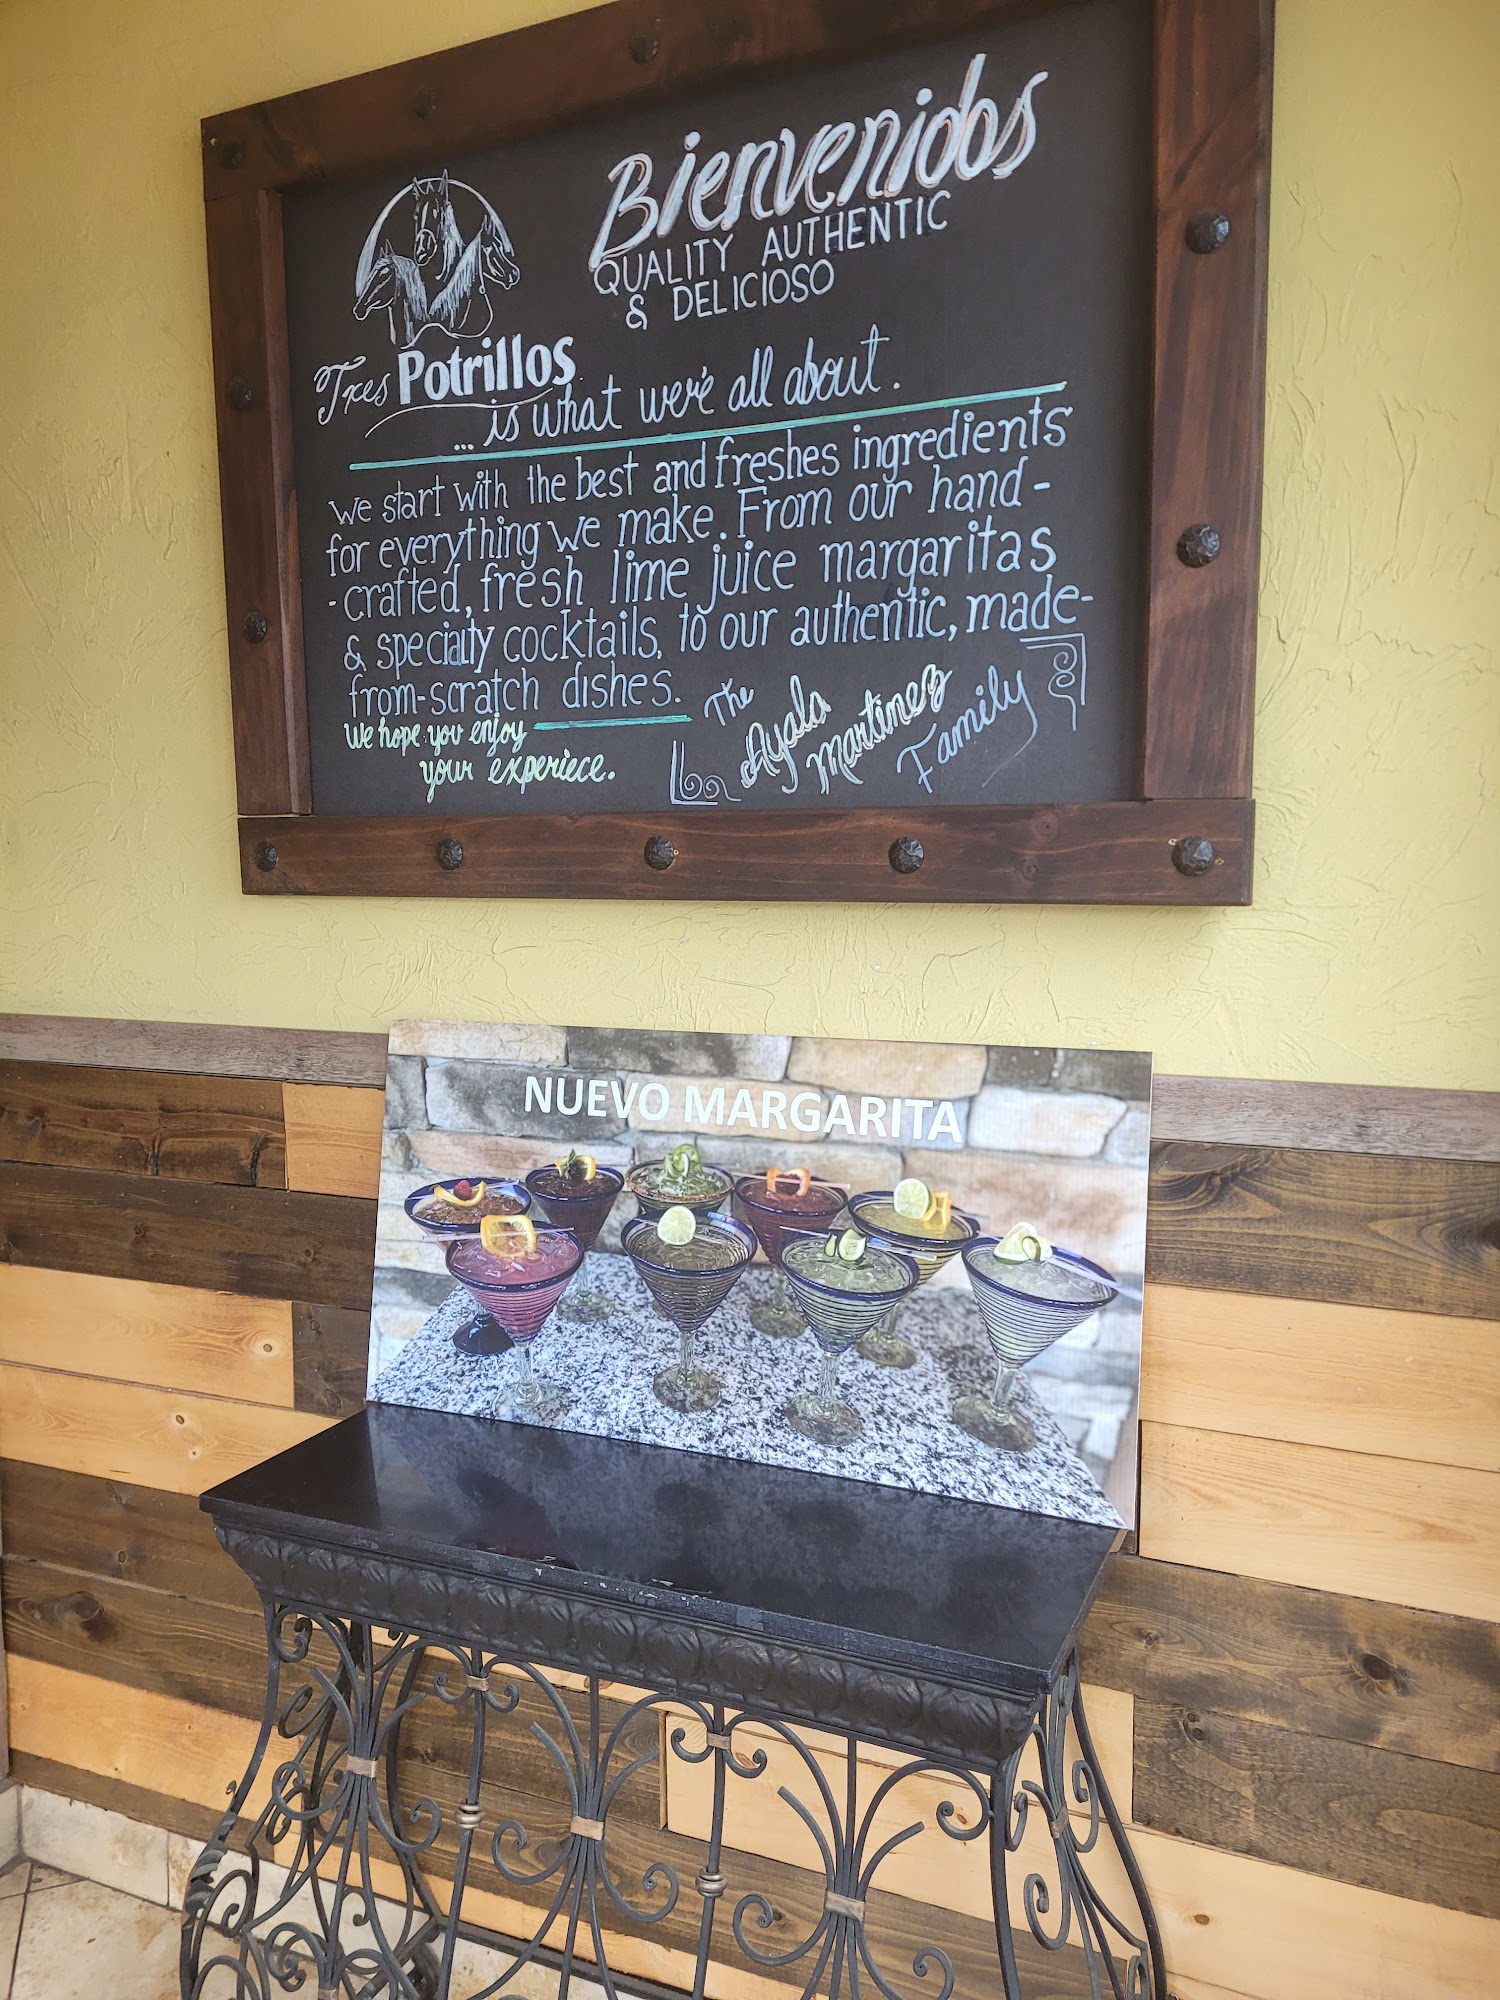 Bienvenidos
QUALITY AUTHENTIC
& DELICIOSO
Tres Potrillos
... is what we're all about.
We start with the best and freshes ingredients
for everything we make. From our hand-
-crafted, fresh lime juice margaritas
& specialty cocktails, to our authentic, made-
from-scratch dishes.
We hope you enjoy
your experiece.
The
Ayala
Martinez
Family
NUEVO MARGARITA